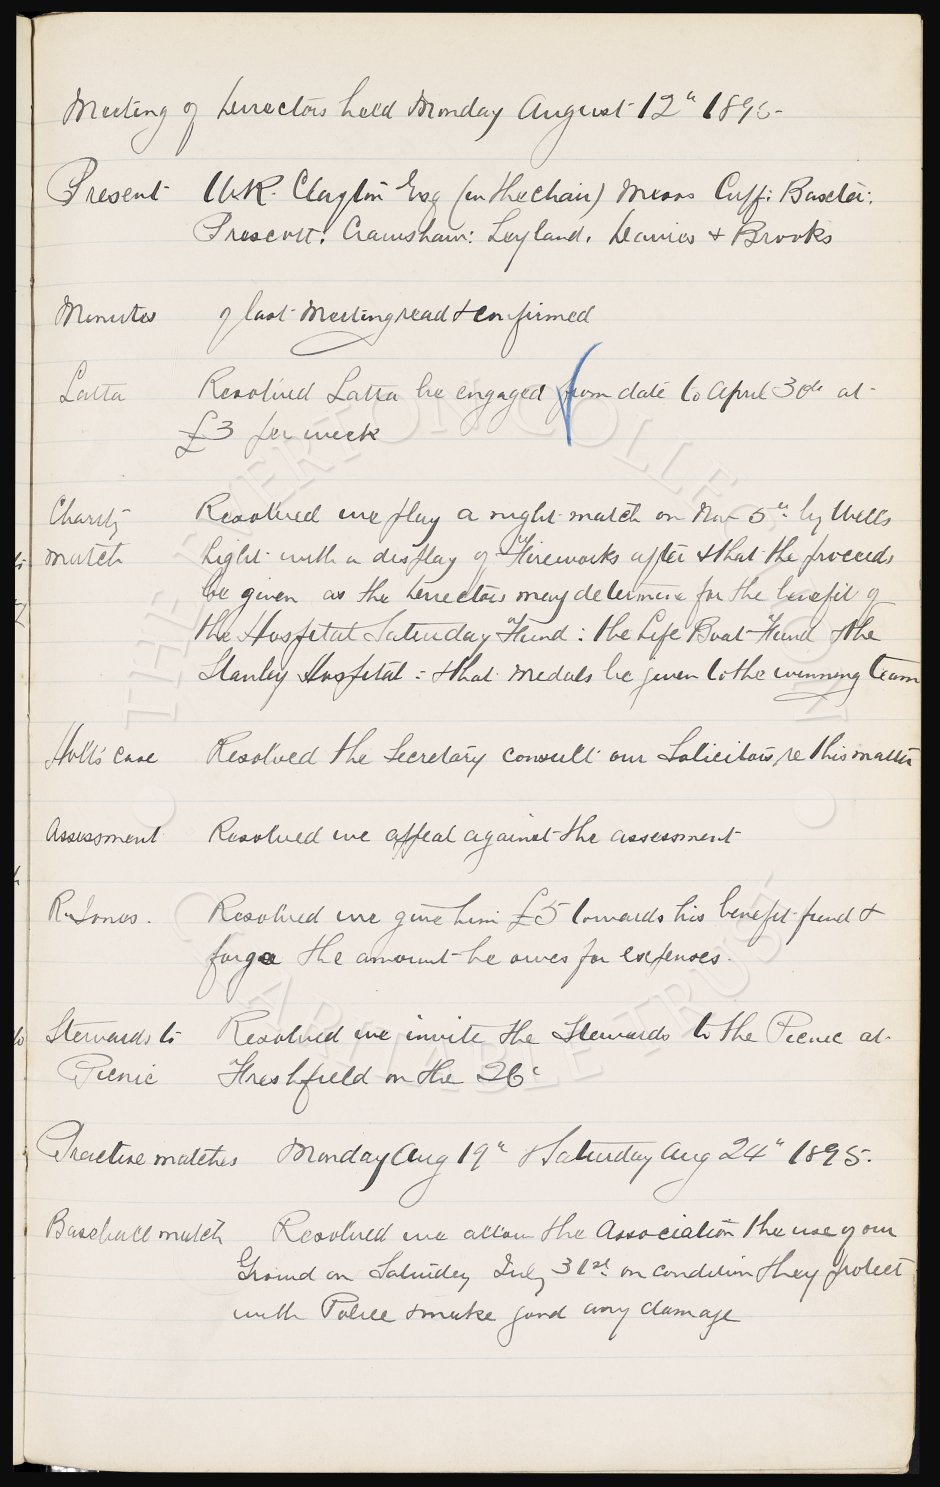 Meeting of Directors held Monday August 12th 1895
Present W.R. Clayton Esq (in the chair) Messrs Cuff: Baxter:
Prescott: Crawshaw: Leyland. Davies & Brooks
Minutes of last Meeting read & confirmed
Latta Resolved Latta be engaged from date to April 30th at
£3 per week
Charity Resolved we play a night match on Nov 5th by Wells
match Light with a display of Fireworks after & that the proceeds
be given as the Directors may determine for the benefit of
the Hospital Saturday Fund: the Life Boat Fund & the
Stanley Hospital: & that medals be given to the winning team
Holt's case Resolved the Secretary consult our Solicitors re this matter
Assessment Resolved we appeal against the assessment
R. Jones. Resolved we give him £5 towards his benefit fund &
forgo the amount he owes for expenses.
Stewards to Resolved we invite the Stewards to the Picnic at
Picnic Freshfield on the 26th
Practice matches Monday Aug 19th & Saturday Aug 24th 1895.
Baseball match Resolved we allow the Association the use of our
Ground on Saturday July 31st on condition they protect
with Police & make good any damage
THE EVERTON COLLECTION
CHARITABLE TRUST